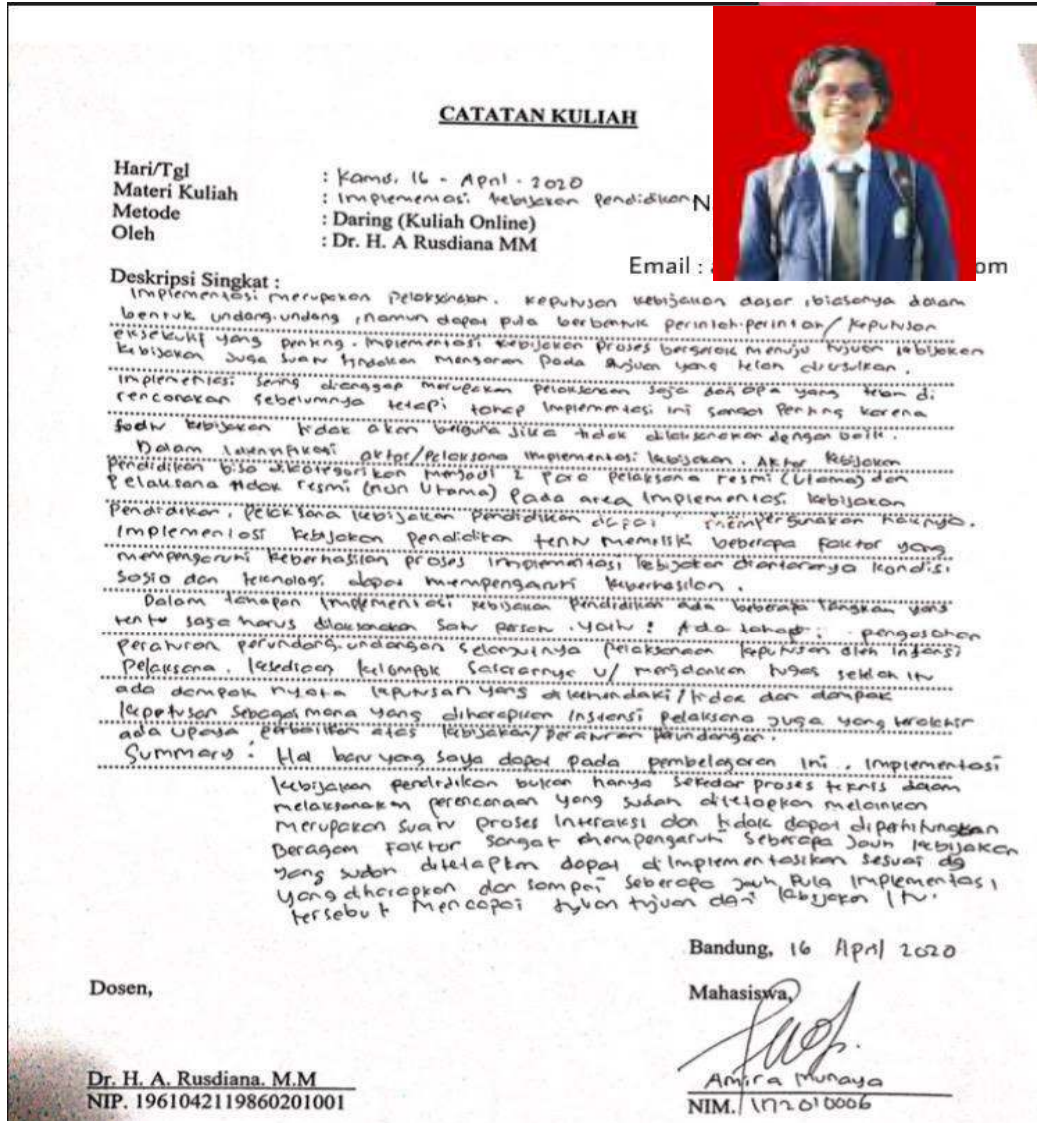 CATATAN KULIAH
Hari/Tgl : Kamis, 16 - April - 2020
Materi Kuliah : Implementasi kebijakan Pendidikan N
Metode : Daring (Kuliah Online)
Oleh : Dr. H. A Rusdiana MM
Email : a om
Deskripsi Singkat :
Implementasi merupakan Pelaksanaan. Keputusan kebijakan dasar, biasanya dalam
bentuk undang-undang, namun dapat pula berbentuk perintah-perintah/keputusan
eksekutif yang penting. Implementasi kebijakan Proses bergerak menuju tujuan kebijakan
kebijakan juga suatu tindakan mengarah Pada tujuan yang telah diusulkan.
Implementasi sering dianggap merupakan Pelaksanaan saja dari apa yang telah di
rencanakan sebelumnya tetapi tahap Implementasi ini sangat Penting karena
suatu kebijakan tidak akan berguna jika tidak dilaksanakan dengan baik.
Dalam Identifikasi aktor/Pelaksana implementasi kebijakan. Aktor kebijakan
Pendidikan bisa dikategorikan menjadi 2 para pelaksana resmi (Utama) dan
Pelaksana tidak resmi (non Utama) pada area Implementasi kebijakan
Pendidikan, Pelaksana kebijakan Pendidikan dapat mempergunakan haknya.
Implementasi kebijakan Pendidikan tentu memiliki beberapa faktor yang
mempengaruhi keberhasilan proses implementasi kebijakan diantaranya kondisi
Sosio dan teknologi dapat mempengaruhi keberhasilan.
Dalam tahapan Implementasi kebijakan Pendidikan ada beberapa yang
tentu saja harus dilaksanakan satu yaitu : Ada tahap : pengesahan
peraturan perundang-undangan selanjutnya Pelaksanaan keputusan oleh Instansi
Pelaksana. kesediaan kelompok u/ menjalankan tugas setelah itu
ada dampak nyata keputusan yang dikehendaki/tidak dan dampak
keputusan sebagaimana yang diharapkan Instansi Pelaksana juga yang terakhir
ada upaya perbaikan atas kebijakan/peraturan
Summary : Hal baru yang saya dapat pada ini. Implementasi
kebijakan pendidikan bukan hanya sekedar proses teknis dalam
melaksanakan perencanaan yang sudah ditetapkan melainkan
merupakan suatu proses Interaksi dan tidak dapat
Beragam Faktor sangat mempengaruhi seberapa jauh kebijakan
yang sudah ditetapkan dapat diimplementasikan sesuai dg
yang diharapkan dan sampai seberapa jauh Pula Implementasi
tersebut Mencapai tujuan dari kebijakan Itu.
Bandung, 16 April 2020
Dosen,
Mahasiswa,
Dr. H. A. Rusdiana. M.M
NIP. 1961042119860201001
Amira Munaya
NIM. 1172010006